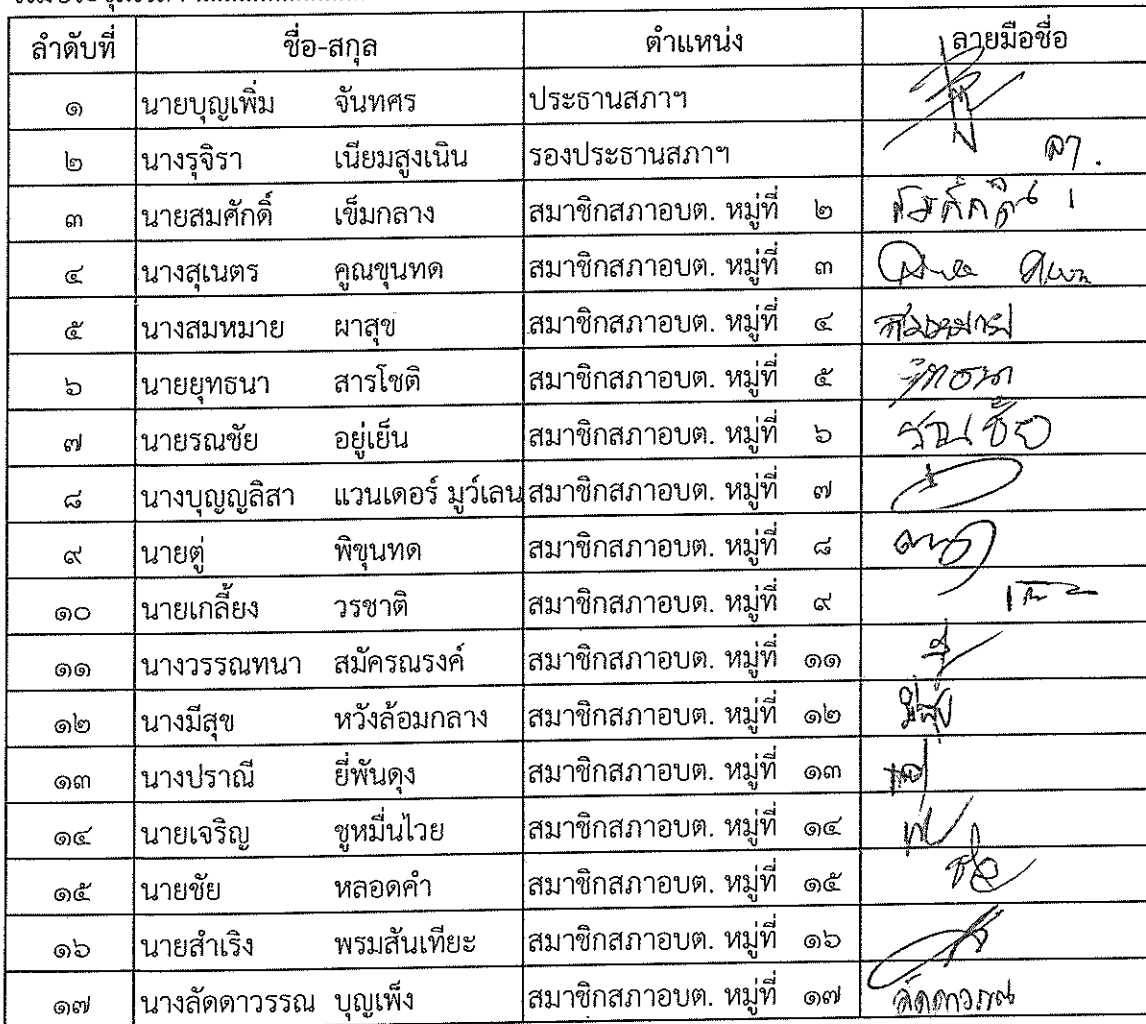 ลำดับที่ ชื่อ-สกุล ตำแหน่ง ลายมือชื่อ
๑ นายบุญเพิ่ม จันทศร ประธานสภาฯ
๒ นางรุจิรา เนียมสูงเนิน รองประธานสภาฯ
๓ นายสมศักดิ์ เข็มกลาง สมาชิกสภาอบต. หมู่ที่ ๒
๔ นางสุเนตร คูณขุนทด สมาชิกสภาอบต. หมู่ที่ ๓
๕ นางสมหมาย ผาสุข สมาชิกสภาอบต. หมู่ที่ ๔ สมหมาย
๖ นายยุทธนา สารโชติ สมาชิกสภาอบต. หมู่ที่ ๕
๗ นายรณชัย อยู่เย็น สมาชิกสภาอบต. หมู่ที่ ๖ รณชัย
๘ นางบุญญลิสา แวนเดอร์ มูว์เลน สมาชิกสภาอบต. หมู่ที่ ๗
๙ นายตู่ พิขุนทด สมาชิกสภาอบต. หมู่ที่ ๘
๑๐ นายเกลี้ยง วรชาติ สมาชิกสภาอบต. หมู่ที่ ๙
๑๑ นางวรรณทนา สมัครณรงค์ สมาชิกสภาอบต. หมู่ที่ ๑๑
๑๒ นางมีสุข หวังล้อมกลาง สมาชิกสภาอบต. หมู่ที่ ๑๒
๑๓ นางปราณี ยี่พันดุง สมาชิกสภาอบต. หมู่ที่ ๑๓
๑๔ นายเจริญ ชูหมื่นไวย สมาชิกสภาอบต. หมู่ที่ ๑๔
๑๕ นายชัย หลอดคำ สมาชิกสภาอบต. หมู่ที่ ๑๕
๑๖ นายสำเริง พรมสันเทียะ สมาชิกสภาอบต. หมู่ที่ ๑๖
๑๗ นางลัดดาวรรณ บุญเพ็ง สมาชิกสภาอบต. หมู่ที่ ๑๗